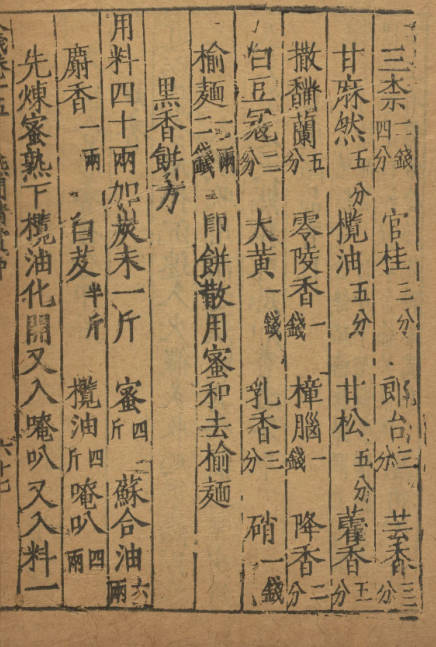 三柰一錢四分 官桂三分 郎台三分 芸香三分
甘麻然五分 欖油五分 甘松五分 藿香五分
撒馥蘭五分 零陵香一錢 樟腦一錢 降香二分
白豆蔻二分 大黃一錢 乳香三分 硝一錢
榆麵一兩二錢 印餅散用蜜和去榆麵
黑香餅方
用料四十兩加炭末一斤 蜜四斤 蘇合油六兩
麝香一兩 白芨半斤 欖油四斤 唵叭四兩
先煉蜜熟下欖油化開又入唵叭又入料一
六十七